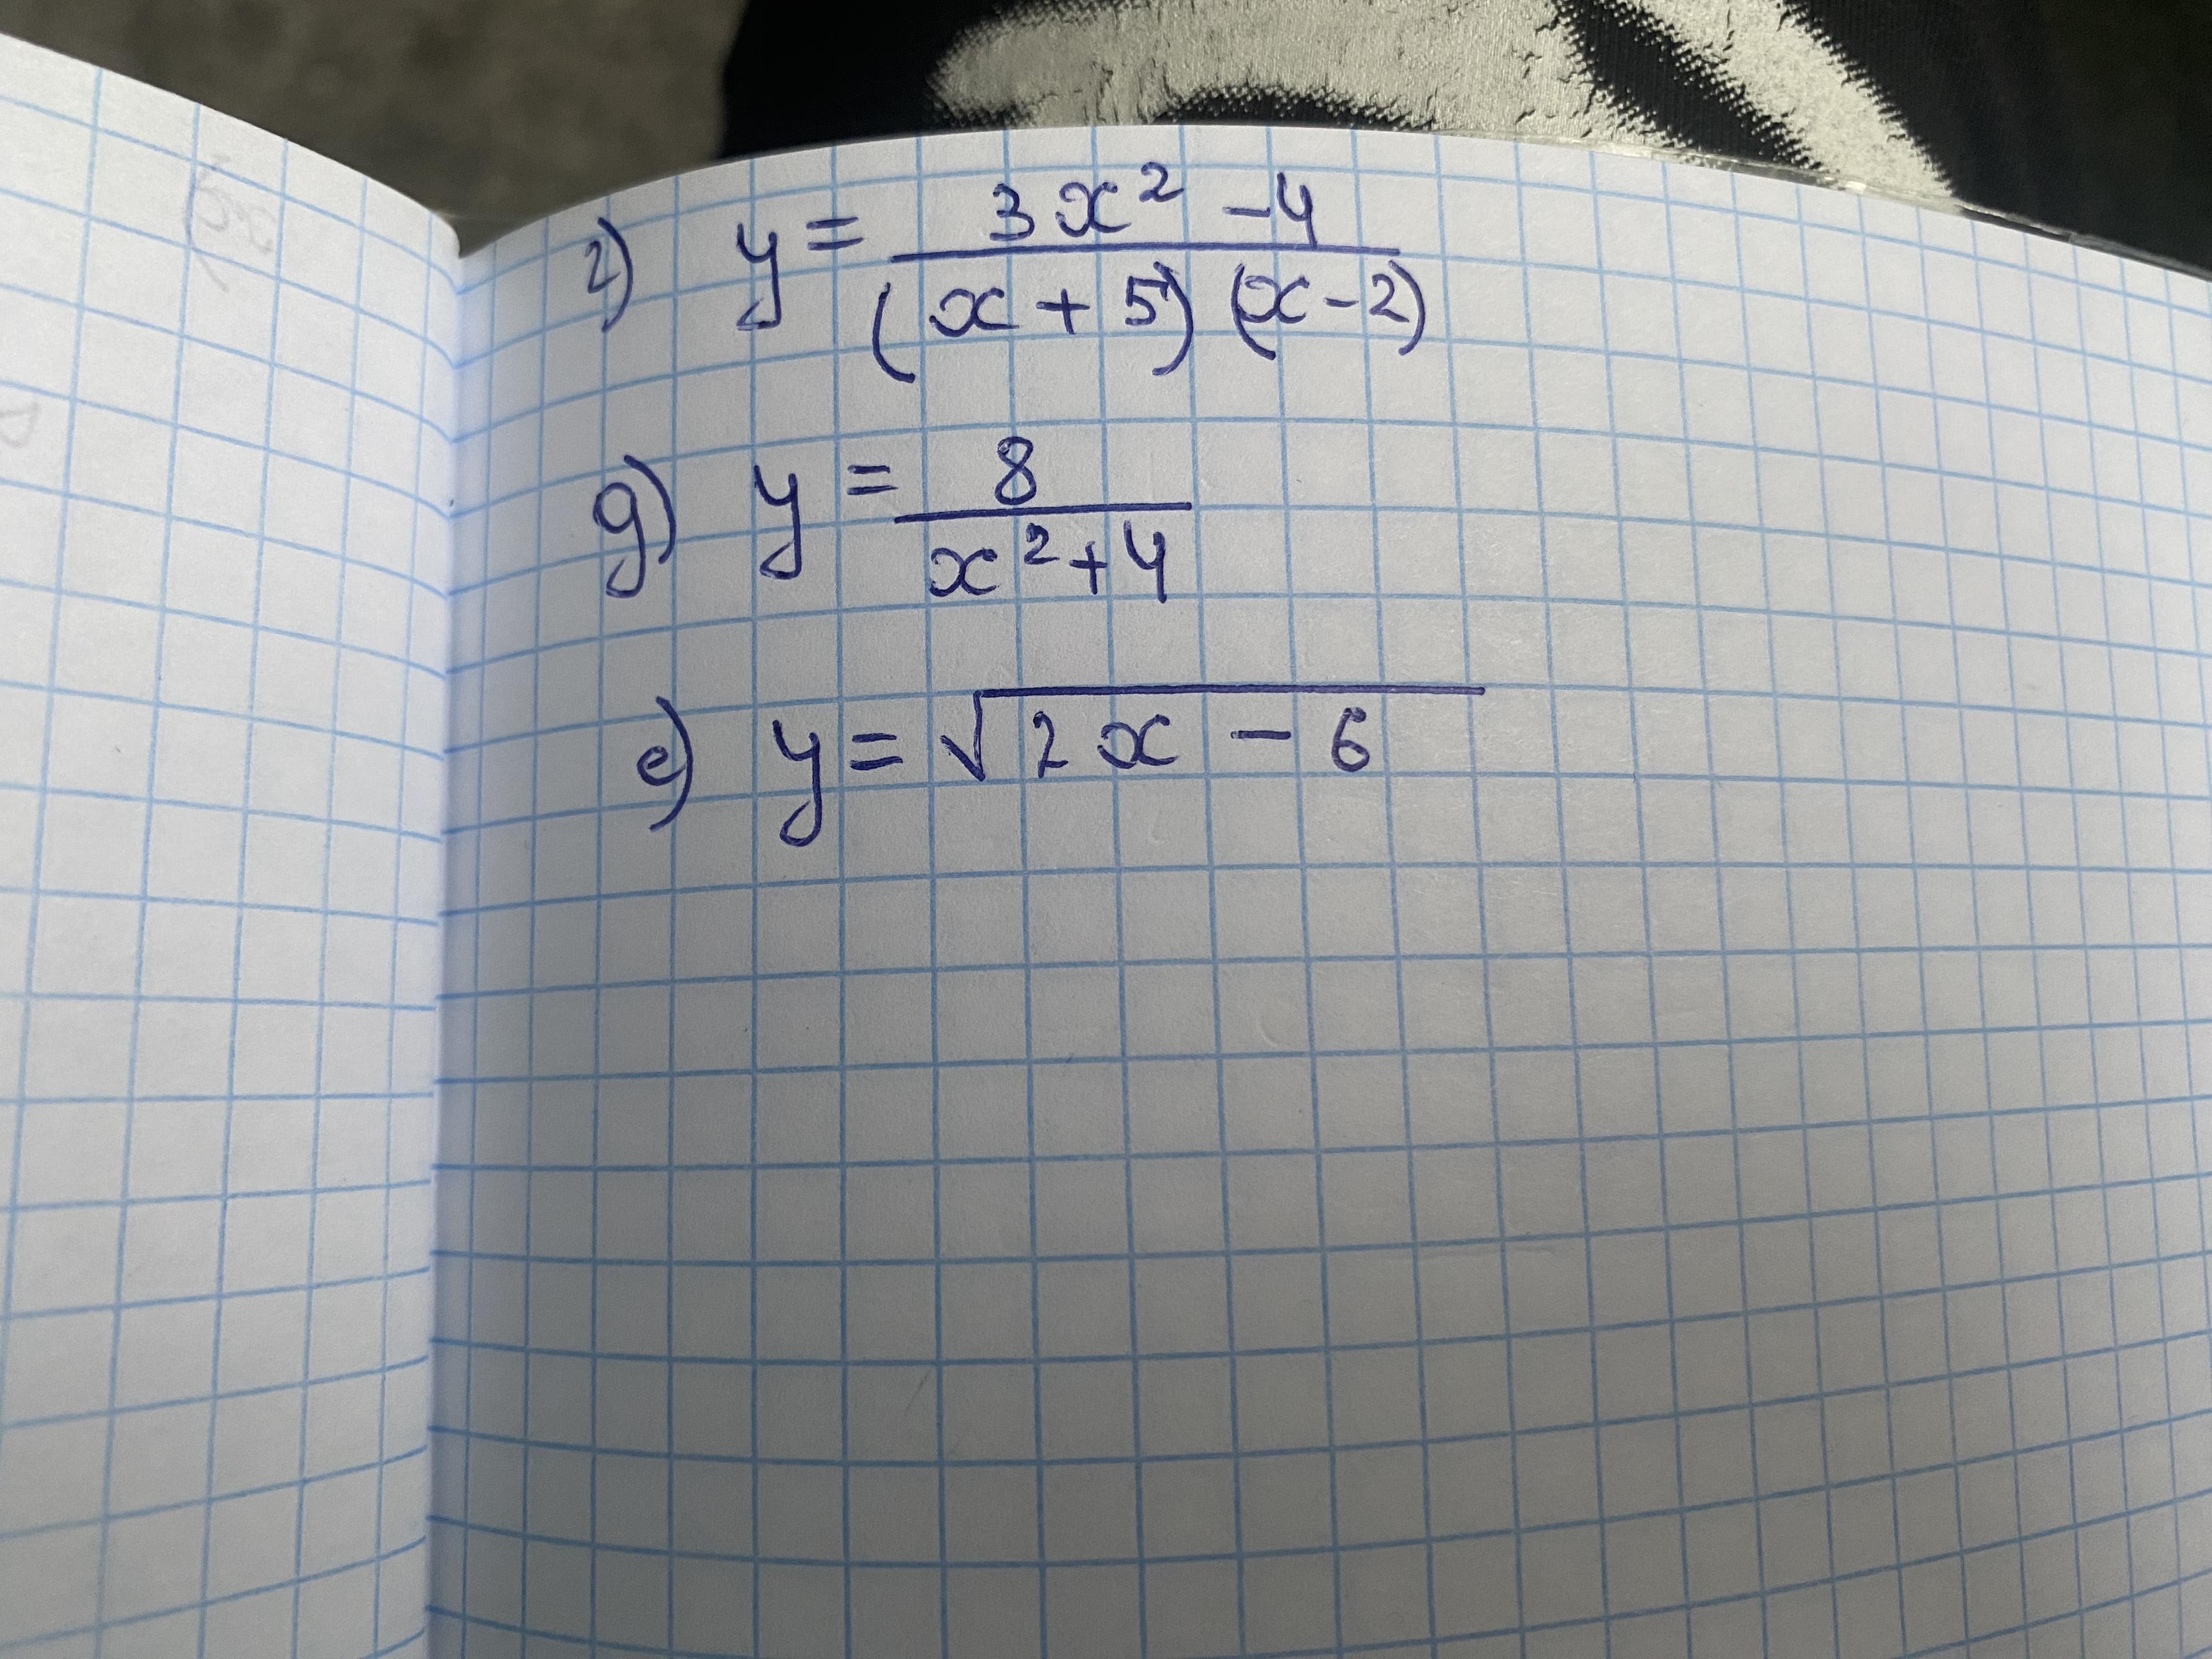 г) y = (3x² - 4) / ((x + 5)(x - 2))
д) y = 8 / (x² + 4)
е) y = √(2x - 6)